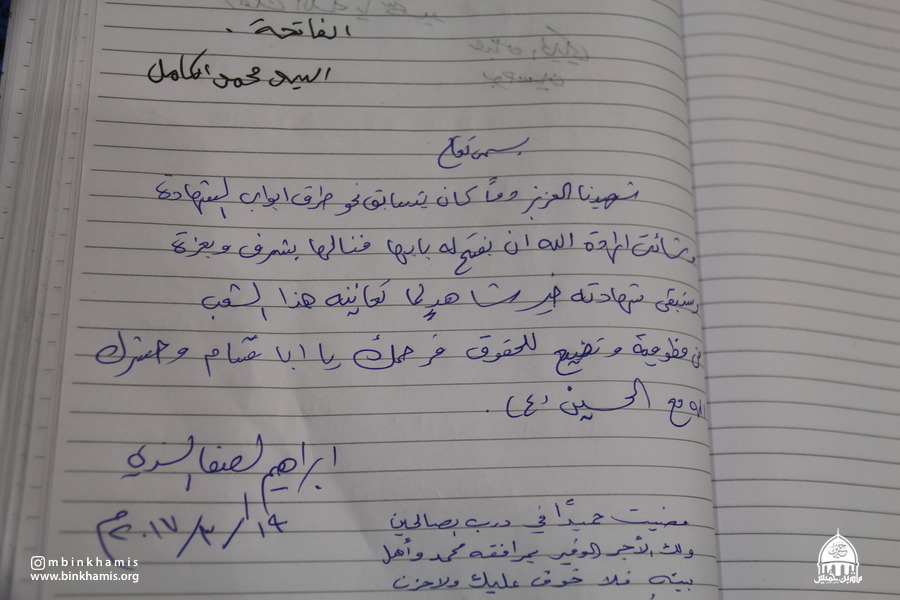 الفاتحة .
السيد محمد الكامل
بسمه تعالى
شهيدنا العزيز دوماً كان يتسابق نحو طرق ابواب الشهادة
وشائت إرادة الله ان يفتح له بابها فنالها بشرف وبعزة
وستبقى شهادته خير شاهدٍ لما تعانيه هذا الشعب
من مظلومية وتضييع للحقوق فرحمك يا ابا وحشرك
الله مع الحسين (ع) .
ابراهيم الصفا
١٤/٣/٢٠١٧م
مضيت حميدًا في درب الصالحين
ولك الأجر الوفير بمرافقة محمد وأهل
بيته فلا خوف عليك ولا حزن
mbinkhamis
www.binkhamis.org